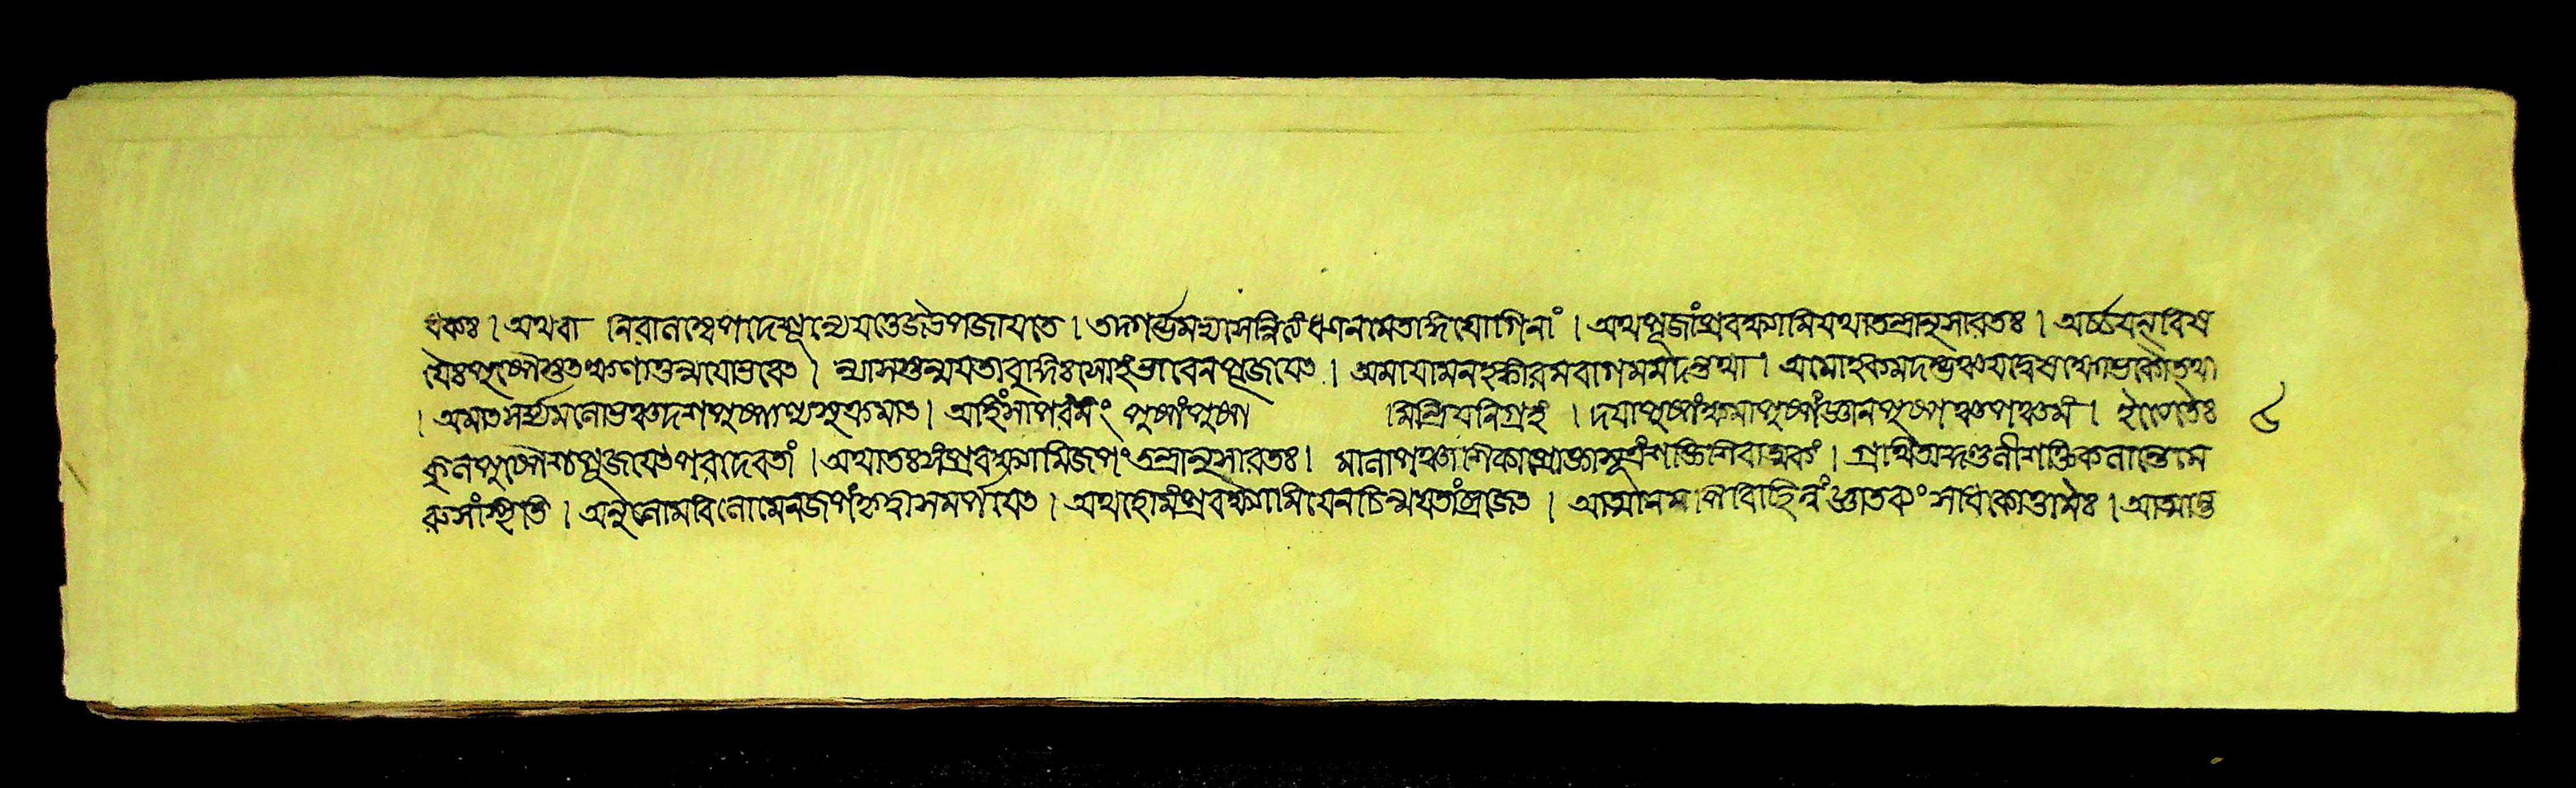 ধকঃ । অথবা নিরালম্বেপদেশূন্যেযত্তেজউপজাযতে । তদ্গর্ভমভ্যসেন্নিত্যং ধ্যানমেতদ্ধিযোগিনাং । অথপূজাংপ্রবক্ষ্যামিযথাতন্ত্রানুসারতঃ । অর্চ্চযন্বিষ
যৈঃপুষ্পৈস্তৎক্ষণাত্তন্মযোভবেৎ । ন্যাসস্তন্মযতাবুদ্ধিঃসোহংভাবেনপূজযেৎ । অমাযামনহঙ্কারমরাগমমদন্তথা । অমোহকমদম্ভঞ্চঅদ্বেষাক্ষোভকৌতথা
। অমাৎসর্য্যমলোভঞ্চদশপুষ্পাণ্যনুক্রমাৎ । অহিংসাপরমং পুষ্পংপুষ্প মিন্দ্রিযনিগ্রহং । দযাপুষ্পংক্ষমাপুষ্পংজ্ঞানপুষ্পঞ্চপঞ্চমং । ইত্যেতৈঃ ৮
পুষ্পৈশ্চপূজযেৎপরদেবতাং । অথাতঃসংপ্রবক্ষ্যামিজপংতন্ত্রানুসারতঃ । মালাপঞ্চাশিকাপ্রোক্তাসূত্রংশক্তিশিবাত্মকং । গ্রন্থি
রুসংস্থিতি । অনুলোমবিলোমেনজপং সমর্পযেৎ । অথহোমংপ্রবক্ষ্যামিযেনচিন্মযতাংব্রজেৎ । আত্মানম সাধকোত্তমৈঃ । আত্মান্ত